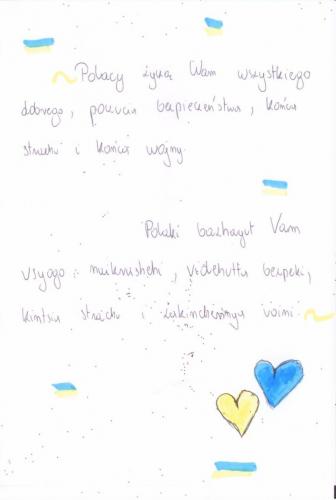 Polacy życzą Wam wszystkiego
dobrego, poczucia bezpieczeństwa, końca
strachu i końca wojny.
Polaki bazhayut Vam
vsyogo naikrashchi, vidchuttia bezpeki,
kintsia strachu i zakinchennya voini.